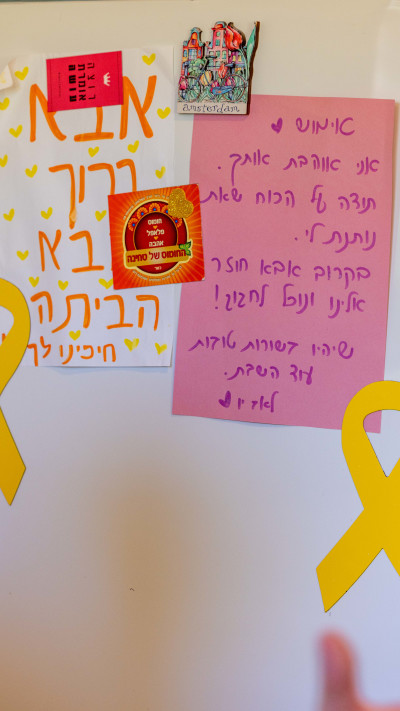 אבא
צריך
אבא
הביתה
חיכינו לך
amsterdam
חומוס
פלאפל
אהבה
החומוס של סחינה
אימוש
אני אוהבת אותך.
תודה על הכוח שאת
נותנת לי.
בקרוב אבא חוזר
אלינו ונוכל לחגוג!
שיהיו בשורות טובות
עוד השבת.
לאב יו